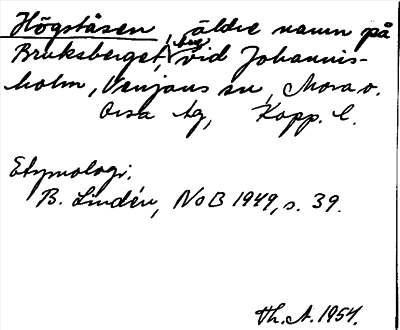 Högståsen, äldre namn på
Bruksberget, berg vid Johannis-
holm, Venjans sn, Mora o.
Orsa tg, Kopp. l.
Etymologi.
B. Lindén, NoB 1949, s. 39.
Th. A. 1954.